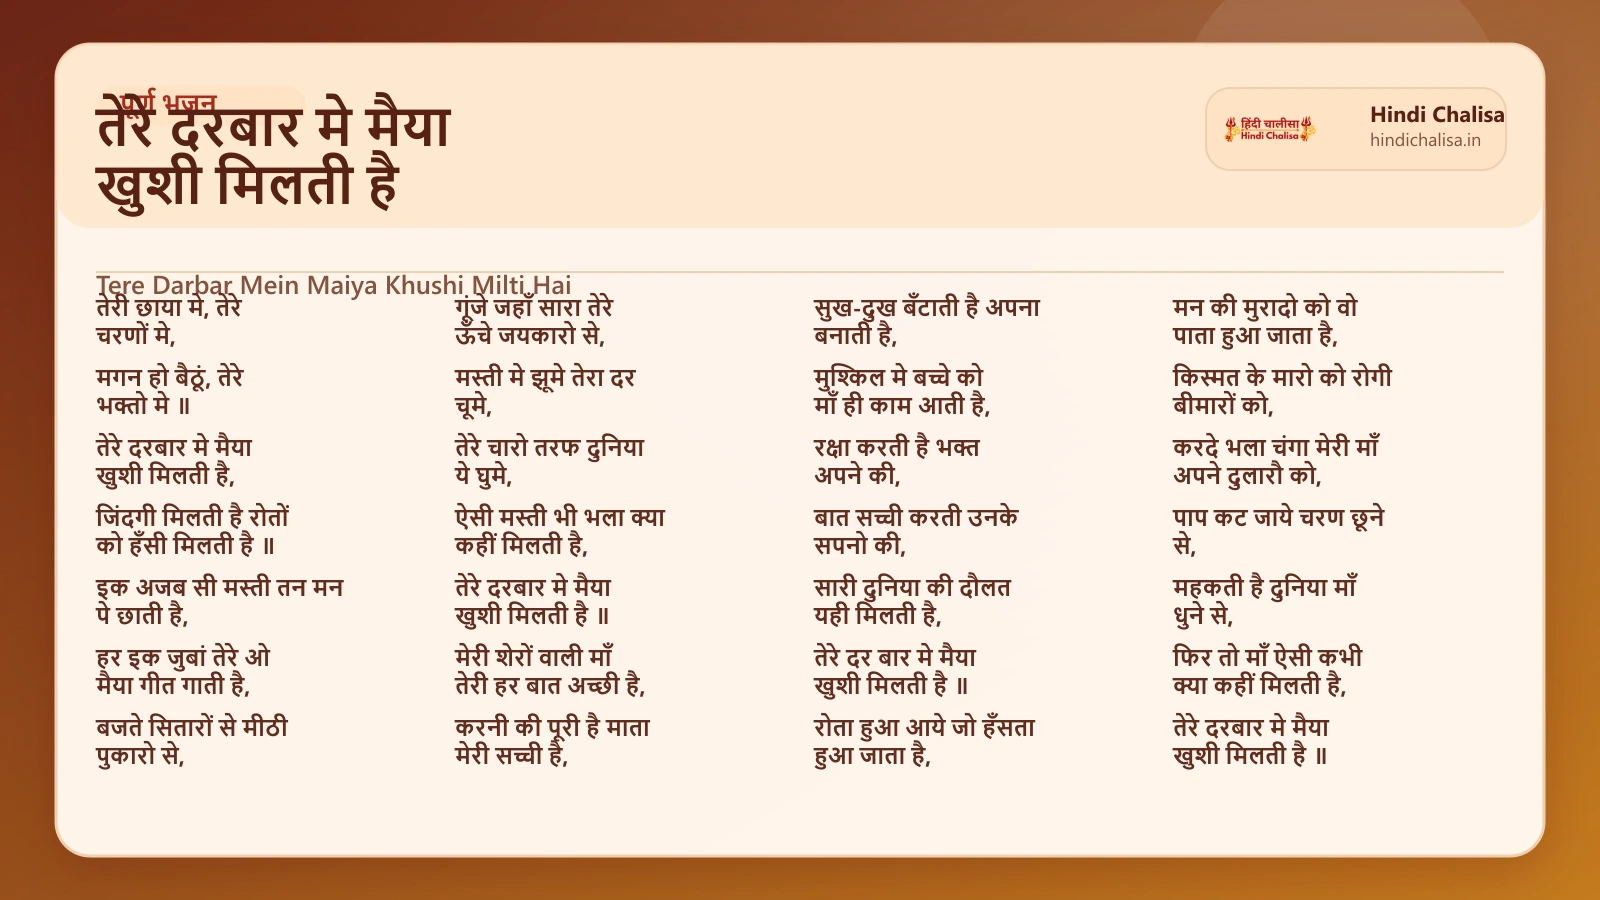 पूर्ण भजन
तेरे दरबार मे मैया
खुशी मिलती है
हिंदी चालीसा
Hindi Chalisa
Hindi Chalisa
hindichalisa.in
Tere Darbar Mein Maiya Khushi Milti Hai
तेरी छाया मे, तेरे
चरणों मे,
मगन हो बैठूं, तेरे
भक्तो मे ॥
तेरे दरबार मे मैया
खुशी मिलती है,
जिंदगी मिलती है रोतों
को हँसी मिलती है ॥
इक अजब सी मस्ती तन मन
पे छाती है,
हर इक जुबां तेरे ओ
मैया गीत गाती है,
बजते सितारों से मीठी
पुकारो से,
गूंजे जहाँ सारा तेरे
ऊँचे जयकारो से,
मस्ती मे झूमे तेरा दर
चूमे,
तेरे चारो तरफ दुनिया
ये घुमे,
ऐसी मस्ती भी भला क्या
कहीं मिलती है,
तेरे दरबार मे मैया
खुशी मिलती है ॥
मेरी शेरों वाली माँ
तेरी हर बात अच्छी है,
करनी की पूरी है माता
मेरी सच्ची है,
सुख-दुख बँटाती है अपना
बनाती है,
मुश्किल मे बच्चे को
माँ ही काम आती है,
रक्षा करती है भक्त
अपने की,
बात सच्ची करती उनके
सपनो की,
सारी दुनिया की दौलत
यही मिलती है,
तेरे दर बार मे मैया
खुशी मिलती है ॥
रोता हुआ आये जो हँसता
हुआ जाता है,
मन की मुरादो को वो
पाता हुआ जाता है,
किस्मत के मारो को रोगी
बीमारों को,
करदे भला चंगा मेरी माँ
अपने दुलारौ को,
पाप कट जाये चरण छूने
से,
महकती है दुनिया माँ
धुने से,
फिर तो माँ ऐसी कभी
क्या कहीं मिलती है,
तेरे दरबार मे मैया
खुशी मिलती है ॥